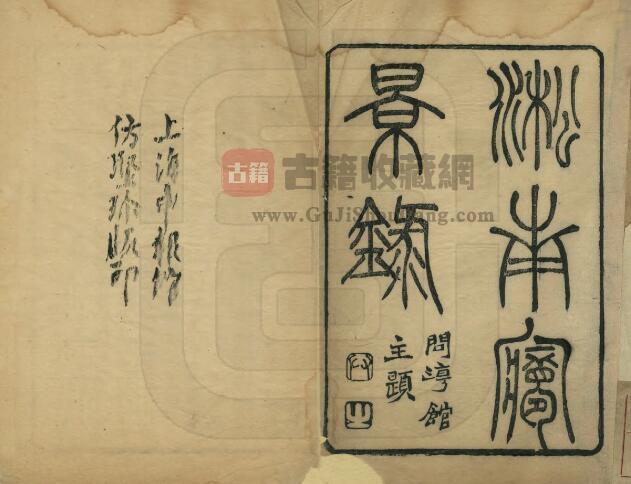 淞南夢
景錄
問 館
主題
上海申報館
仿聚珍版印
古籍
古籍收藏網
www.GuJiShouCang.com